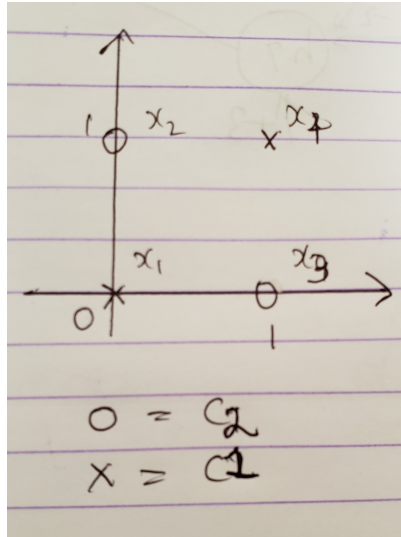 1 x₂ x₄
x₁ x₃
0
1
O = C2
X = C1